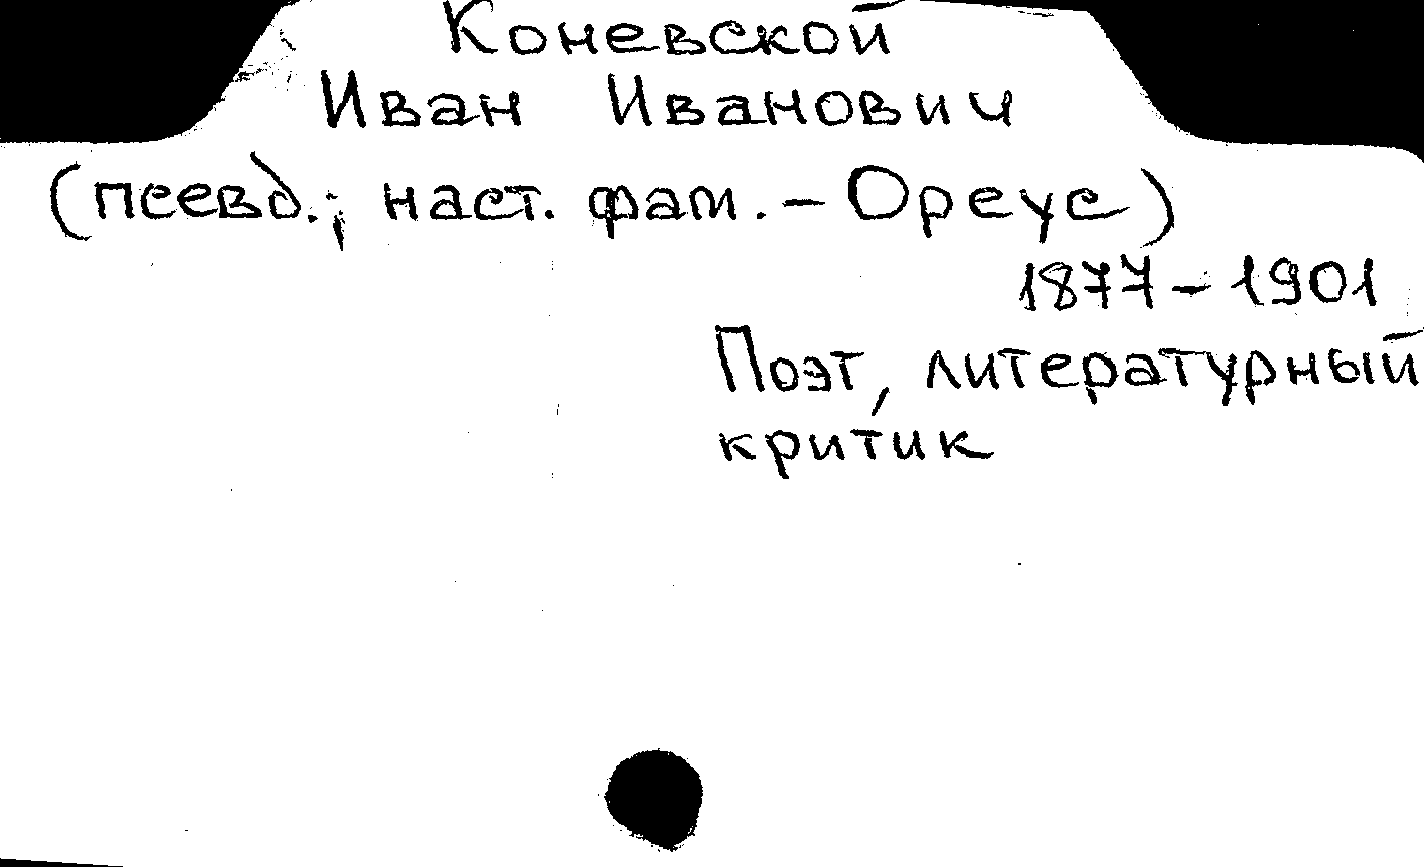 Коневской
Иван Иванович
(псевд.; наст. фам. – Ореус)
1877 – 1901
Поэт, литературный
критик